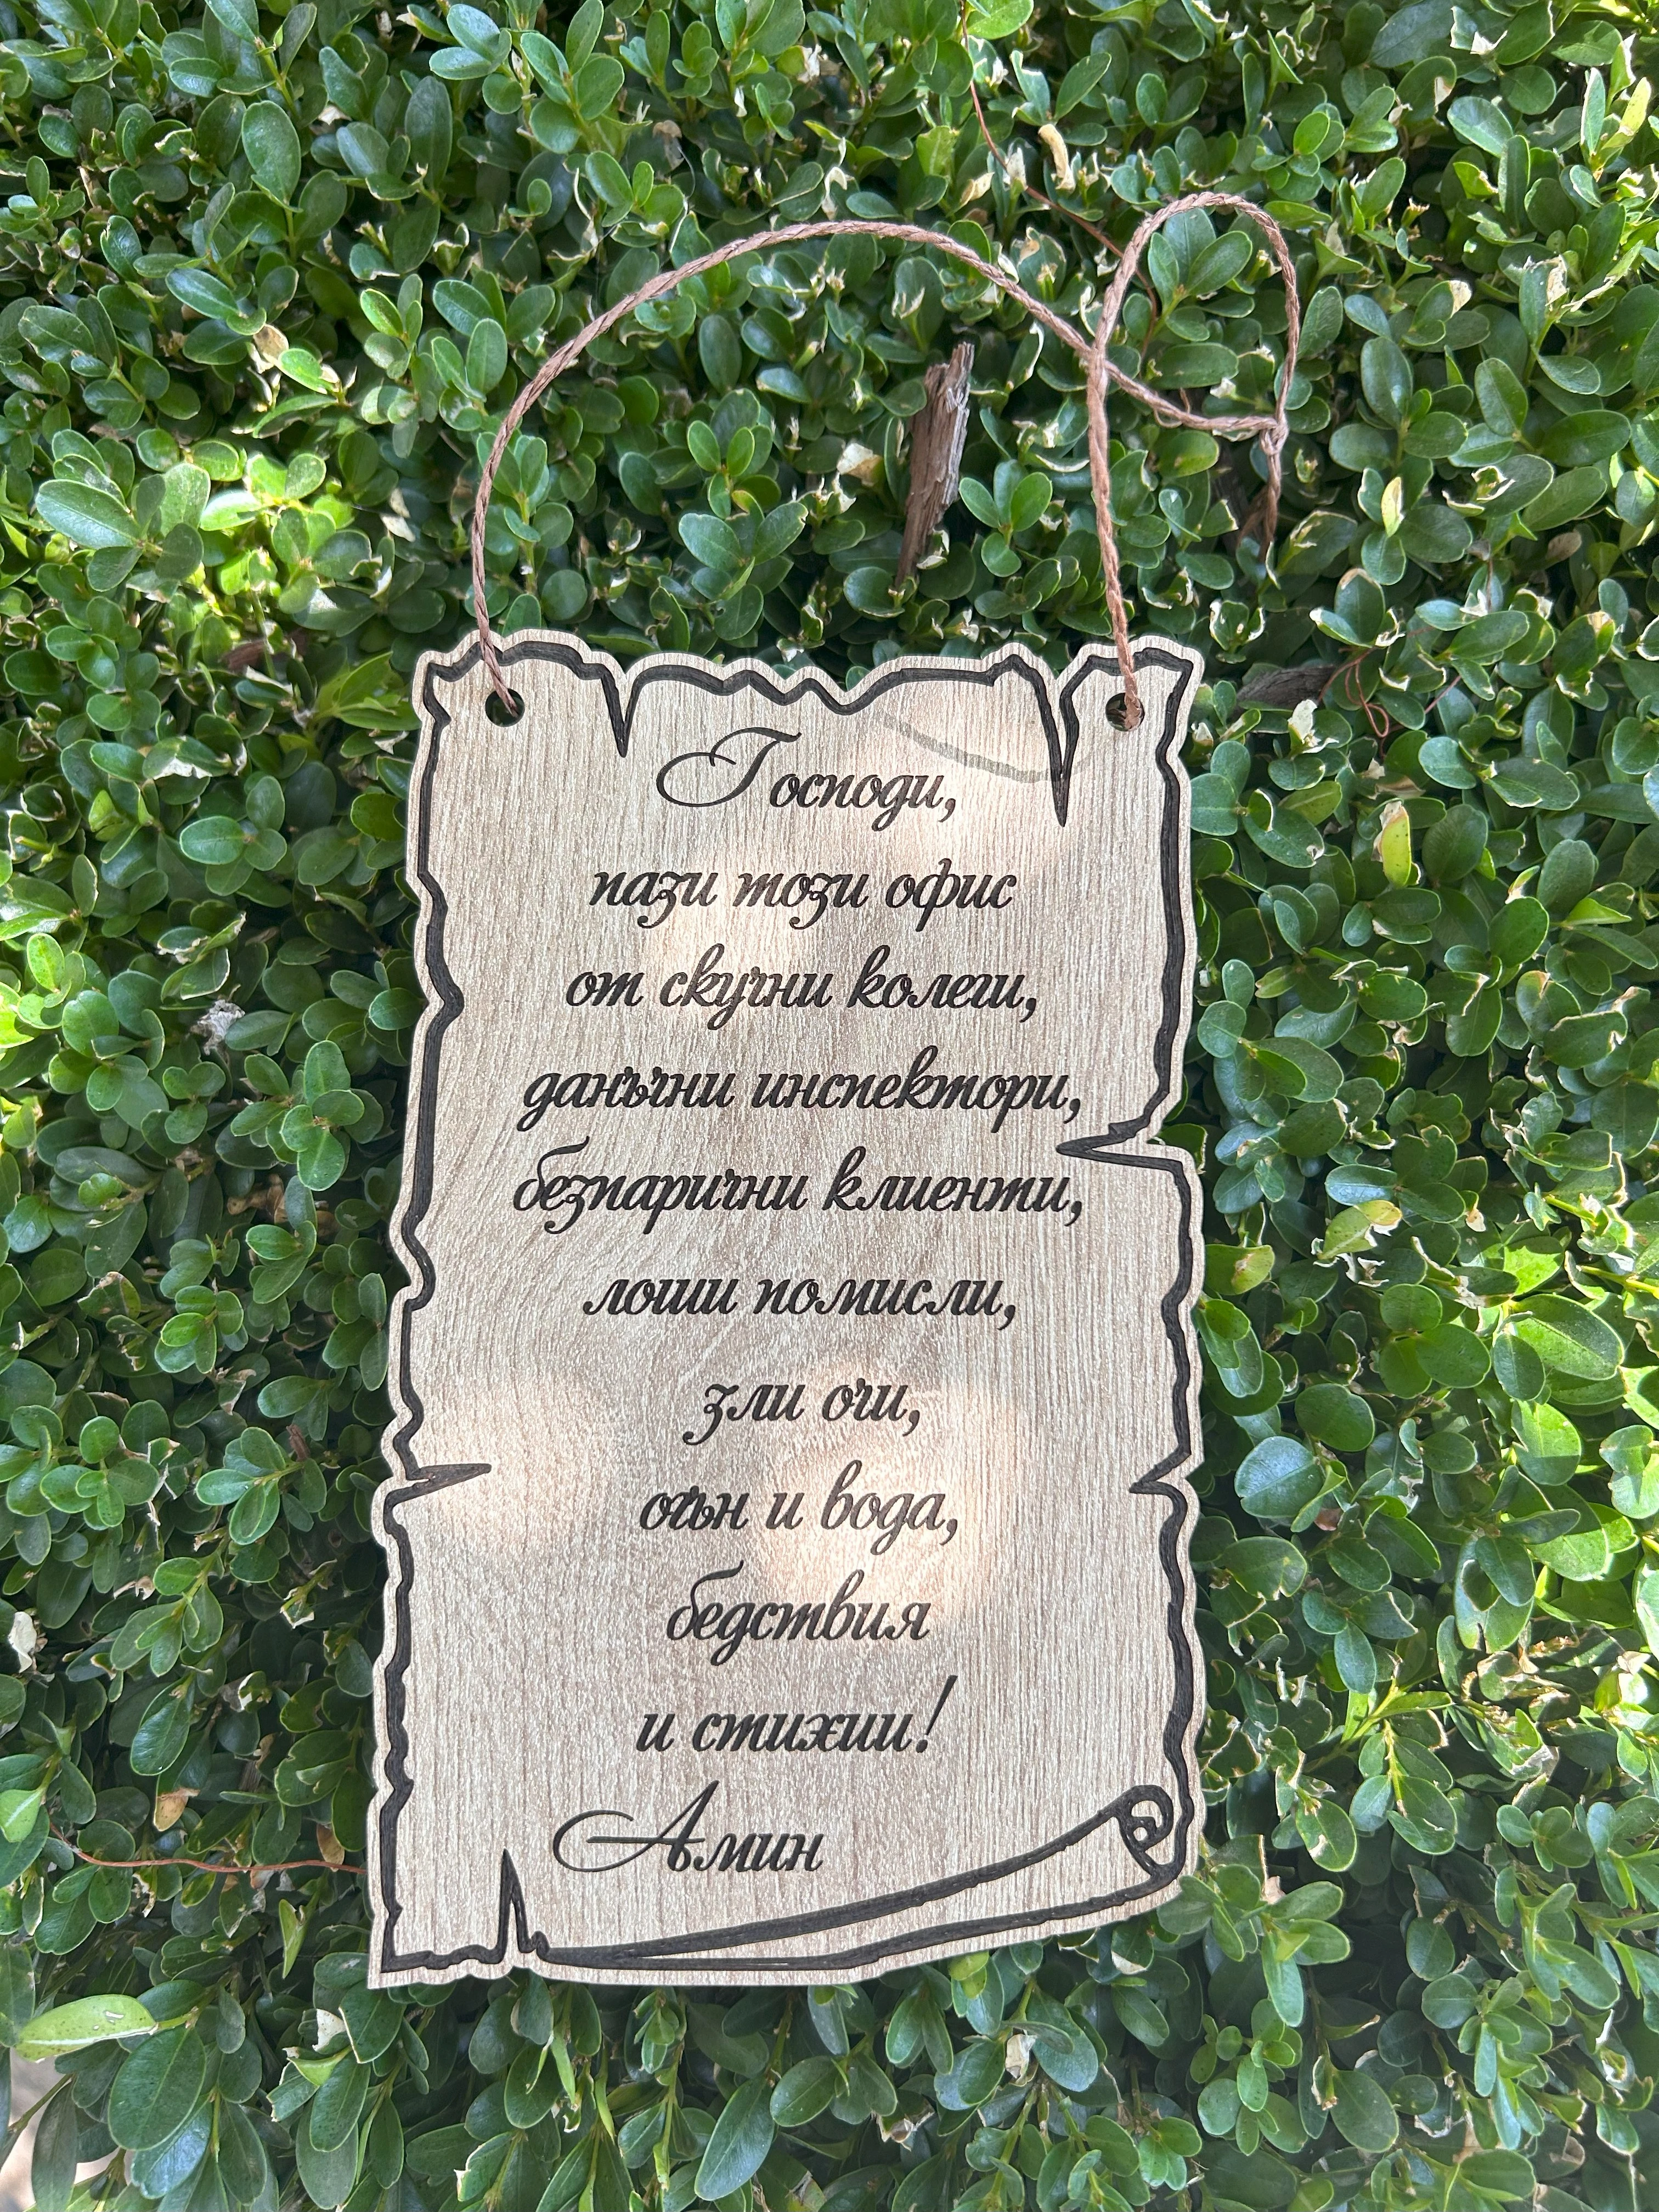 Господи,
пази този офис
от скучни колеги,
данъчни инспектори,
безпарични клиенти,
лоши помисли,
зли очи,
огън и вода,
бедствия
и стихии!
Амин